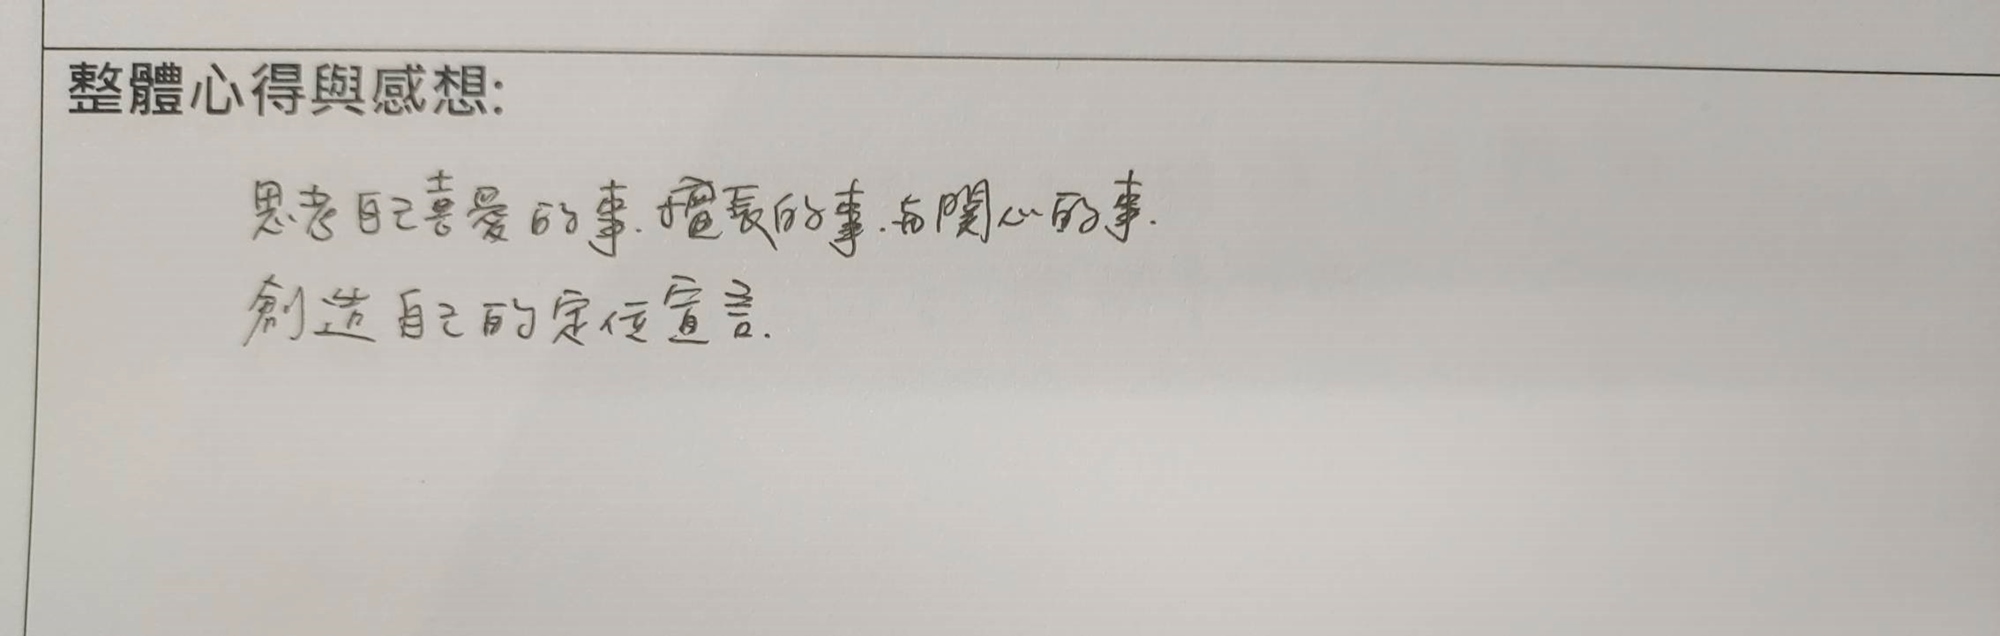 整體心得與感想:
思考自己喜愛的事.擅長的事.与関心的事.
創造自己的定位宣言.